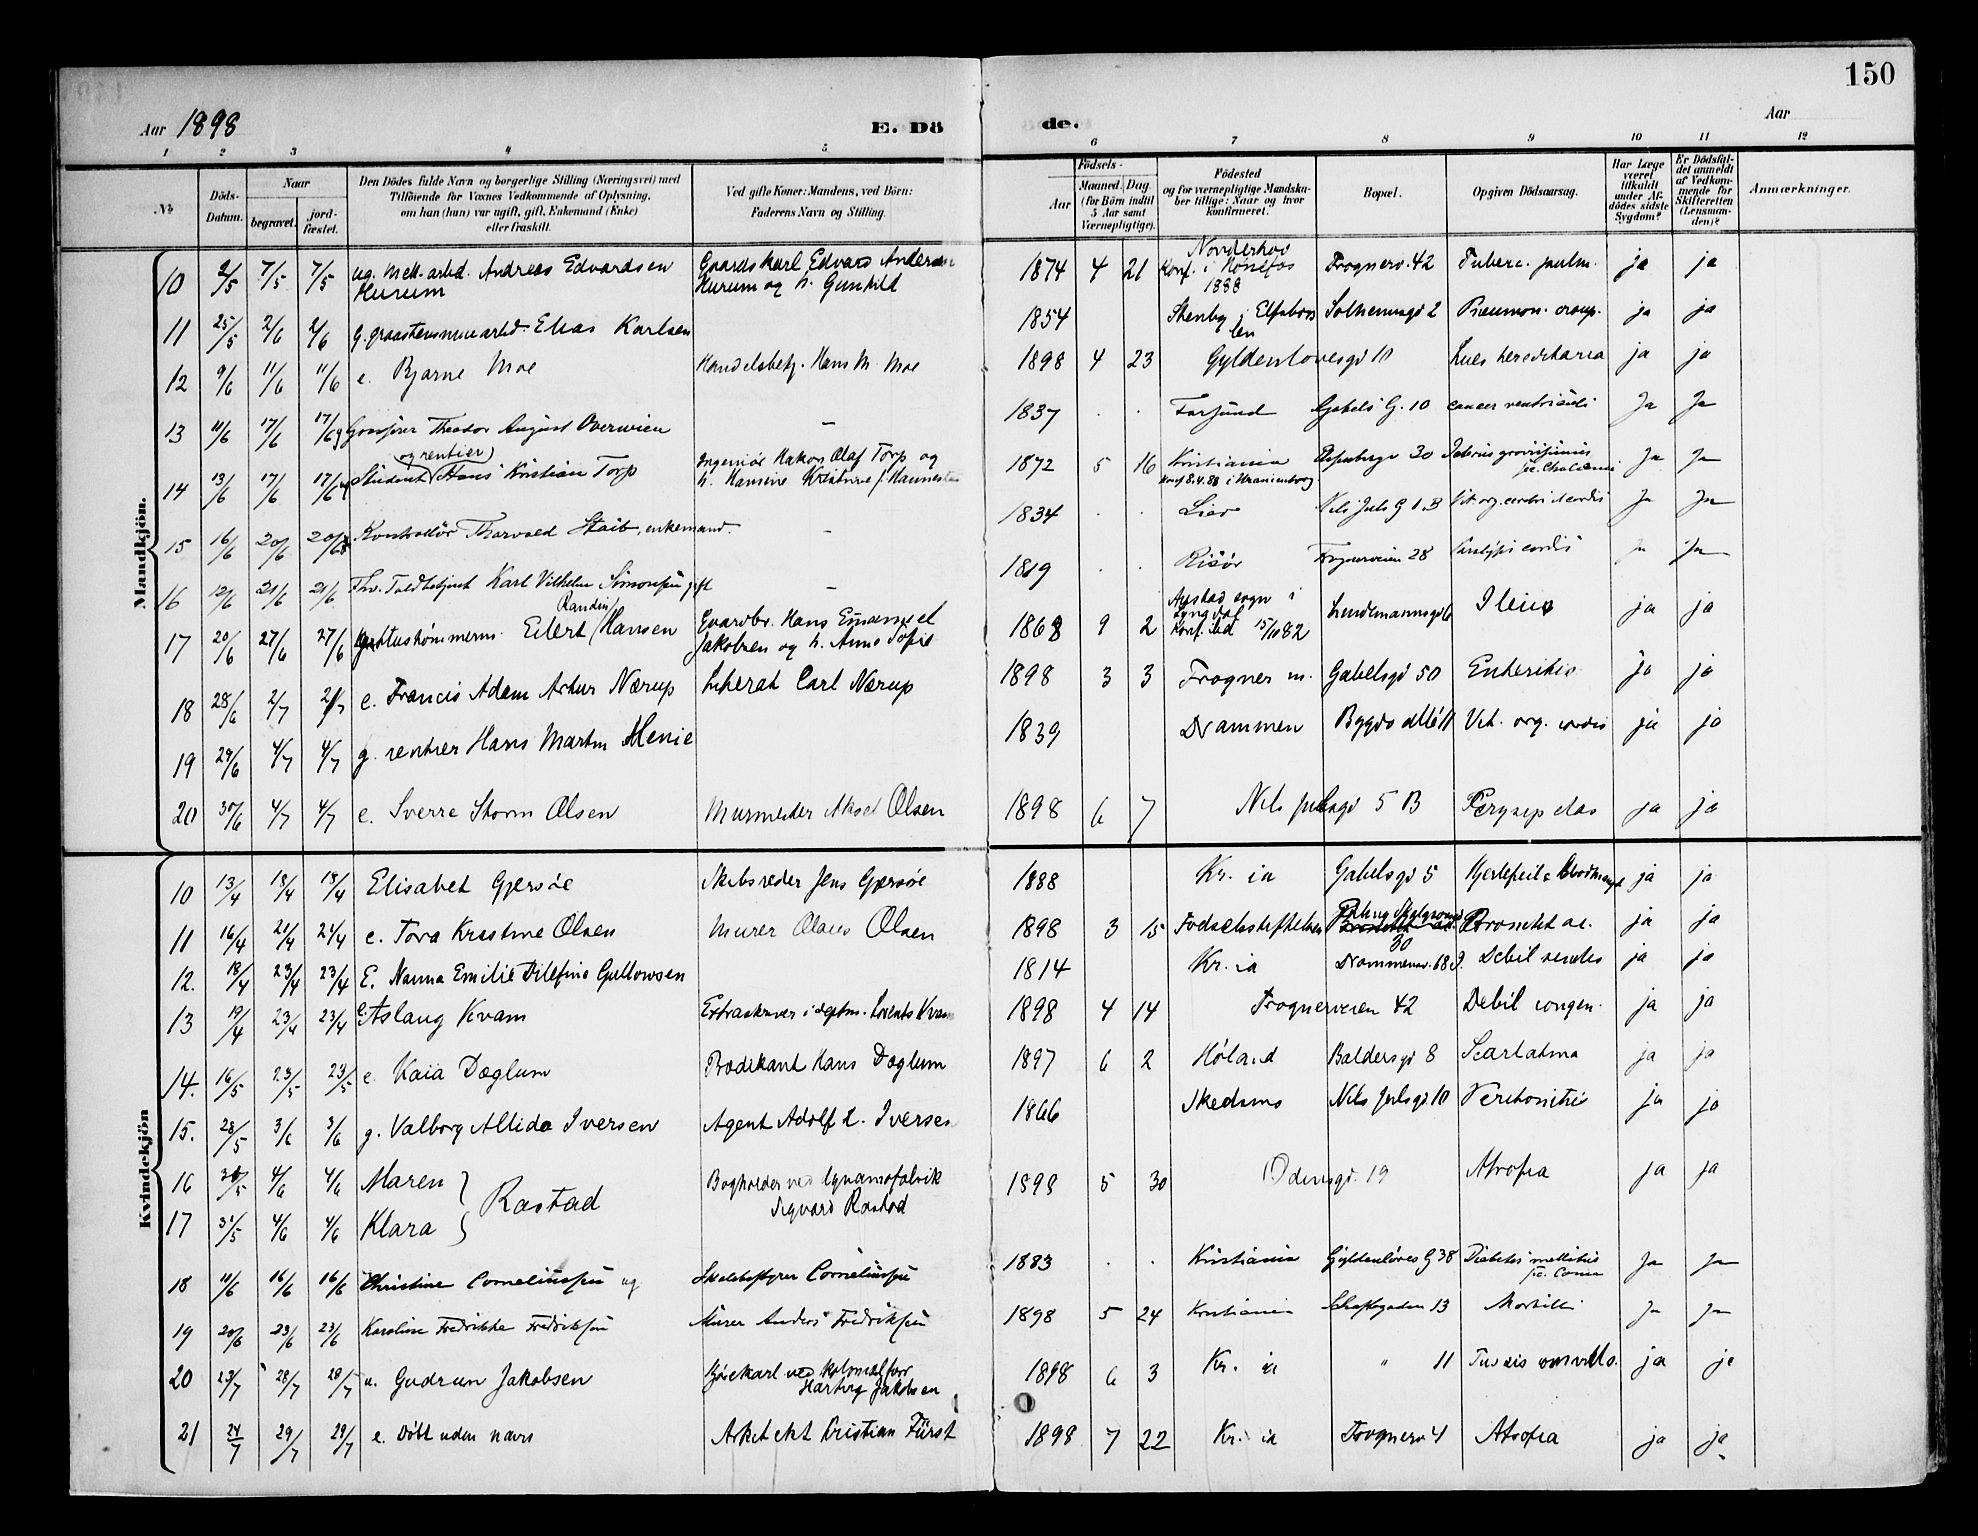 150
Aar 1898 E. Döde. Aar
1 2 3 4 5 6 7 8 9 10 11 12
No
Döds-Datum.
Naar
begravet.
jord-fæstet.
Den Dödes fulde Navn og borgerlige Stilling (Næringsvei) med
Tilföiende for Voxnes Vedkommende af Oplysning,
om han (hun) var ugift, gift, Enkemand (Enke)
eller fraskilt.
Ved gifte Koner: Mandens, ved Börn:
Faderens Navn og Stilling.
Födsels-
Aar
Maaned. Dag.
(for Börn indtil
5 Aar samt
Værnepligtige).
Födested
og for værnepligtige Mandska-
ber tillige: Naar og hvor
konfirmeret.
Bopæl.
Opgiven Dödsaarsag.
Har Læge
været
tilkaldt
under Af-
dödes sidste
Sygdom?
Er Dödsfal-
det anmeldt
af Vedkom-
mende for
Skifteretten
(Lensman-
den)?
Anmærkninger.
Mandkjön.
10 2/5 7/5 7/5 ug. mek. arbd. Andreas Edvardsen Hurum Gaardskarl Edvard Andersen Hurum og h. Gunhild 1874 4 21 Norderhov Konf. i Hönefos 1888 Frognerv. 42 Tuberc. pulm. ja ja
11 25/5 2/6 2/6 g. graastensmurarbd. Elias Karlsen 1854 Elfsborg len Solheimsgd 2 Pneumon. croup. ja ja
12 9/6 11/6 11/6 e. Bjarne Moe Handelsbetj. Hans M. Moe 1898 4 23 Gyldenlövesgd 10 Lues hereditaria ja ja
13 11/6 17/6 17/6 Theodor August Overwien - 1837 . . Farsund Gabels G. 10 cancer ventriculi Ja Ja
14 13/6 17/6 17/6 Student (og rentier) Hans Kristian Torp Ingeniör Hakon Olaf Torp og h. Hansine Kristine f. 1872 5 16 Kristiania Konf 8.4.88 i Uranienborg 30 Icterus gravissimus Ja Ja
15 16/6 20/6 20/6 Kontrollör Thorvald Staib, enkemand. - 1834 . . Lier Nils Juls G 1 B Vit. org. cordis Ja Ja
16 12/6 21/6 21/6 Fhv. Toldbetjent Karl Vilhelm Simonsen gift - 1819 . . Risör Frognerveien 28 Paralysis cordis Ja Ja
17 20/6 27/6 27/6 Eilert (Randin) Hansen Gaardbr. Hans Emanuel Jakobsen og h. Anne Sofie 1868 9 2 sogn i Lyngdal Konf. 15/10 82 Lindemannsgd 6 Ileus ja ja
18 28/6 2/7 2/7 e. Francis Adam Artur Nærup Literat Carl Nærup 1898 3 3 Frogner m. Gabelsgd 50 Enteritis ja ja
19 29/6 4/7 4/7 g. rentier Hans Martin Henie 1839 Drammen Bygdø allé 11 Vit. org. cordis ja ja
20 30/6 4/7 4/7 e. Sverre Storm Olsen Murmester Aksel Olsen 1898 6 7 Nils Julsgd 5 B Erysipelas ja ja
Kvindekjön
10 13/4 18/4 18/4 Elisabet Gjersøe Skibsreder Jens Gjersøe 1888 Kr. ia Gabelsgd 5 Hjertefeil & Blodmangel ja ja
11 16/4 21/4 21/4 e. Tora Kristine Olsen Murer Olaus Olsen 1898 3 15 Födselsstiftelsen 30 Bronchit ac. ja ja
12. 18/4 23/4 23/4 E. Nanna Emilie Delefine Gullowsen 1814 Kr. ia Drammensv. 68 Debil senilis ja ja
13 19/4 23/4 23/4 e. Aslaug Kvam Extraskriver i deptm. Lorents Kvam 1898 4 14 Frognerveien 42 Debil congen. ja ja
14. 16/5 23/5 23/5 e. Kaia Døglum Prædikant Hans Døglum 1897 6 2 Høland Baldersgd 8 Scarlatina ja ja
15. 28/5 3/6 3/6 g. Valborg Allida Iversen Agent Adolf L. Iversen 1866 Skedsmo Nils Julsgd 10 Peritonitis ja ja
16 /5 4/6 4/6 Maren } Rastad Bogholder ved Dynamofabrik Sigvard Rastad 1898 5 30 Odinsgd. 19 Atrofia ja ja
17 31/5 4/6 4/6 Klara }
18 11/6 16/6 16/6 Christine Corneliussen ug Skolebestyrer Corneliussen 1883 . . Kristiania Gyldenlöves G 38 Diabetes mellitus Coma Ja Ja
19 20/6 23/6 23/6 Karoline Fredrikke Fredriksen Murer Anders Fredriksen 1898 5 24 Kristiania 13 Morbilli Ja Ja
20 23/7 28/7 28/7 u. Gudrun Jakobsen Kjørekarl ved kolonialforr Hartvig Jakobsen 1898 6 3 Kr. ia " 11 Tussis convulso. ja ja
21 24/7 29/7 29/7 e. Døbt uden navn Arkitekt Kristian Fürst 1898 7 22 Kr. ia Frognerv 4 Atrofia ja ja